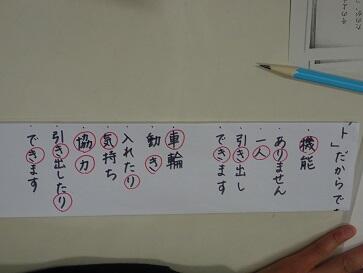 ト」だからで
機能
ありません
一人
引き出し
できます
車輪
動き
入れたり
気持ち
協力
引き出したり
できます